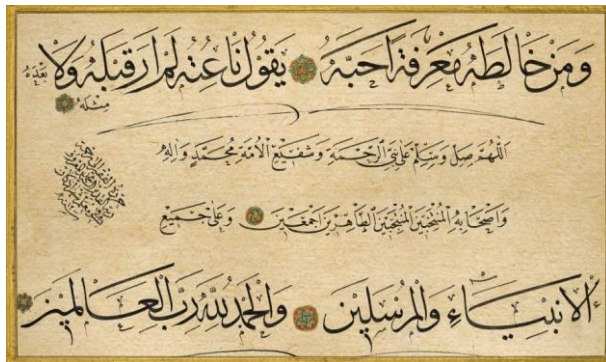 وَمَنْ خَالَطَهُ مَعْرِفَةً اَحَبَّهُ يَقُولُ نَاعِتُهُ لَمْ اَرَ قَبْلَهُ وَلَا بَعْدَهُ
مِثْلَهُ
اَللّٰهُمَّ صَلِّ وَسَلِّمْ عَلٰى نَبِيِّ الرَّحْمَةِ وَشَفِيعِ الْاُمَّةِ مُحَمَّدٍ وَاٰلِهِ
وَاَصْحَابِهِ الطَّاهِرِينَ اَجْمَعِينَ وَعَلٰى جَمِيعِ
الْاَنْبِيَاءِ وَالْمُرْسَلِينَ وَالْحَمْدُ لِلّٰهِ رَبِّ الْعَالَمِينَ